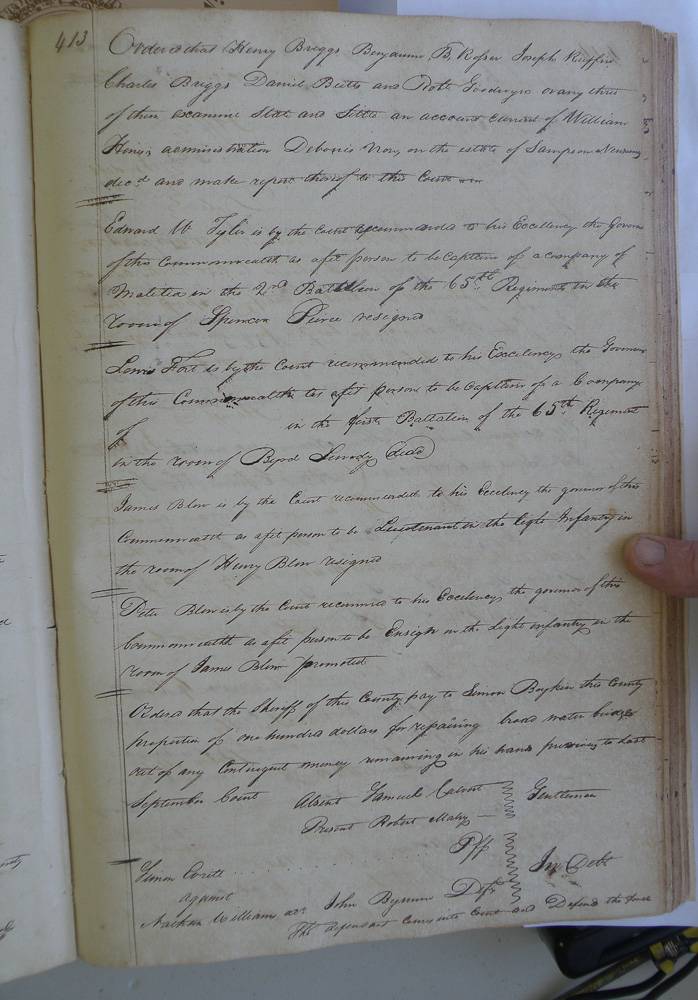 413
Ordered that Henry Briggs Benjamin B. Rosser Joseph Ruffin
Charles Briggs Daniel Butts and Robt Goodwyn or any three
of them examine State and Settle an account current of William
Hines administration Debonis Non, on the estate of Sampson Newsum
decd and make report thereof to this Court
Edward W Tyler is by the Court recommended to his Excellency the Governor
of this Commonwealth as a fit person to be Captain of a company of
Malitia in the 2nd Battalion of the 65th Regiment in the
room of Spencer Pierce resigned
Lewis Fort is by the Court recommended to his Excellency the Governor
of this Commonwealth as a fit person to be Captain of a Company
of in the first Battalion of the 65th Regiment
in the room of Byrd dead
James Blow is by the Court recommended to his Excelency the govenor of this
Commonwealth as a fit person to be Lieutenant in the Light Infantry in
the room of Henry Blow resigned
Peter Blow is by the Court recommed to his Excelency the govenor of this
Commonwealth as a fit person to be Ensign in the Light infantry in the
room of James Blow promoted
Ordered that the Sheriff of this County pay to Simon Boykin this County
proportion of one hundred dollars for repairing broad water bridge
out of any Contingent money remaining in his hands previous to last
September Court Absent Samuel Calvert Gentlemen
Present Robert Mabry
Plff
Simon In Debt
against
Nathan William and John Bynum Defts
The defendant comes into Court and Defend the